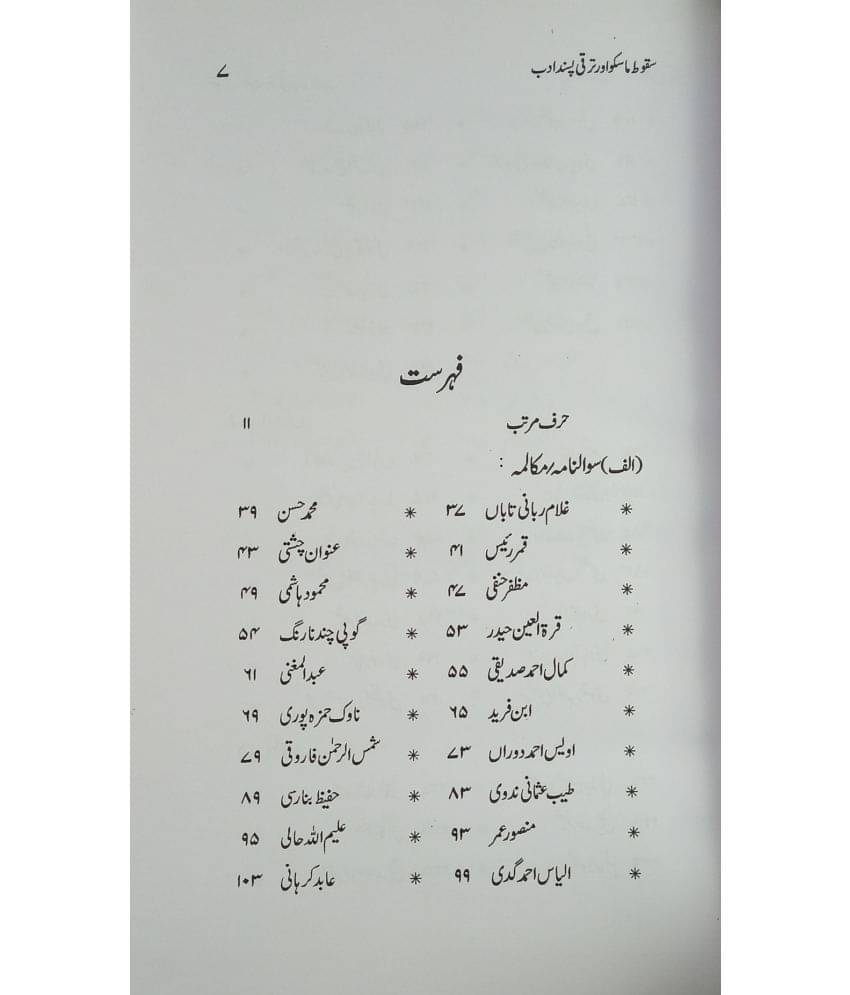 سقوط ماسکو اور ترقی پسند ادب ۷
فہرست
حرف مرتب ۱۱
(الف) سوالنامہ/مکالمہ :
* غلام ربانی تاباں ۳۷ * محمد حسن ۳۹
* قمر رئیس ۴۱ * عنوان چشتی ۴۳
* مظفر حنفی ۴۷ * محمود ہاشمی ۴۹
* قرۃ العین حیدر ۵۳ * گوپی چند نارنگ ۵۴
* کمال احمد صدیقی ۵۵ * عبدالمغنی ۶۱
* ابن فرید ۶۵ * ناوک حمزہ پوری ۶۹
* اویس احمد دوراں ۷۳ * شمس الرحمٰن فاروقی ۷۹
* طیب عثمانی ندوی ۸۳ * حفیظ بنارسی ۸۹
* منصور عمر ۹۳ * علیم اللہ حالی ۹۵
* الیاس احمد گدی ۹۹ * عابد کرہانی ۱۰۳